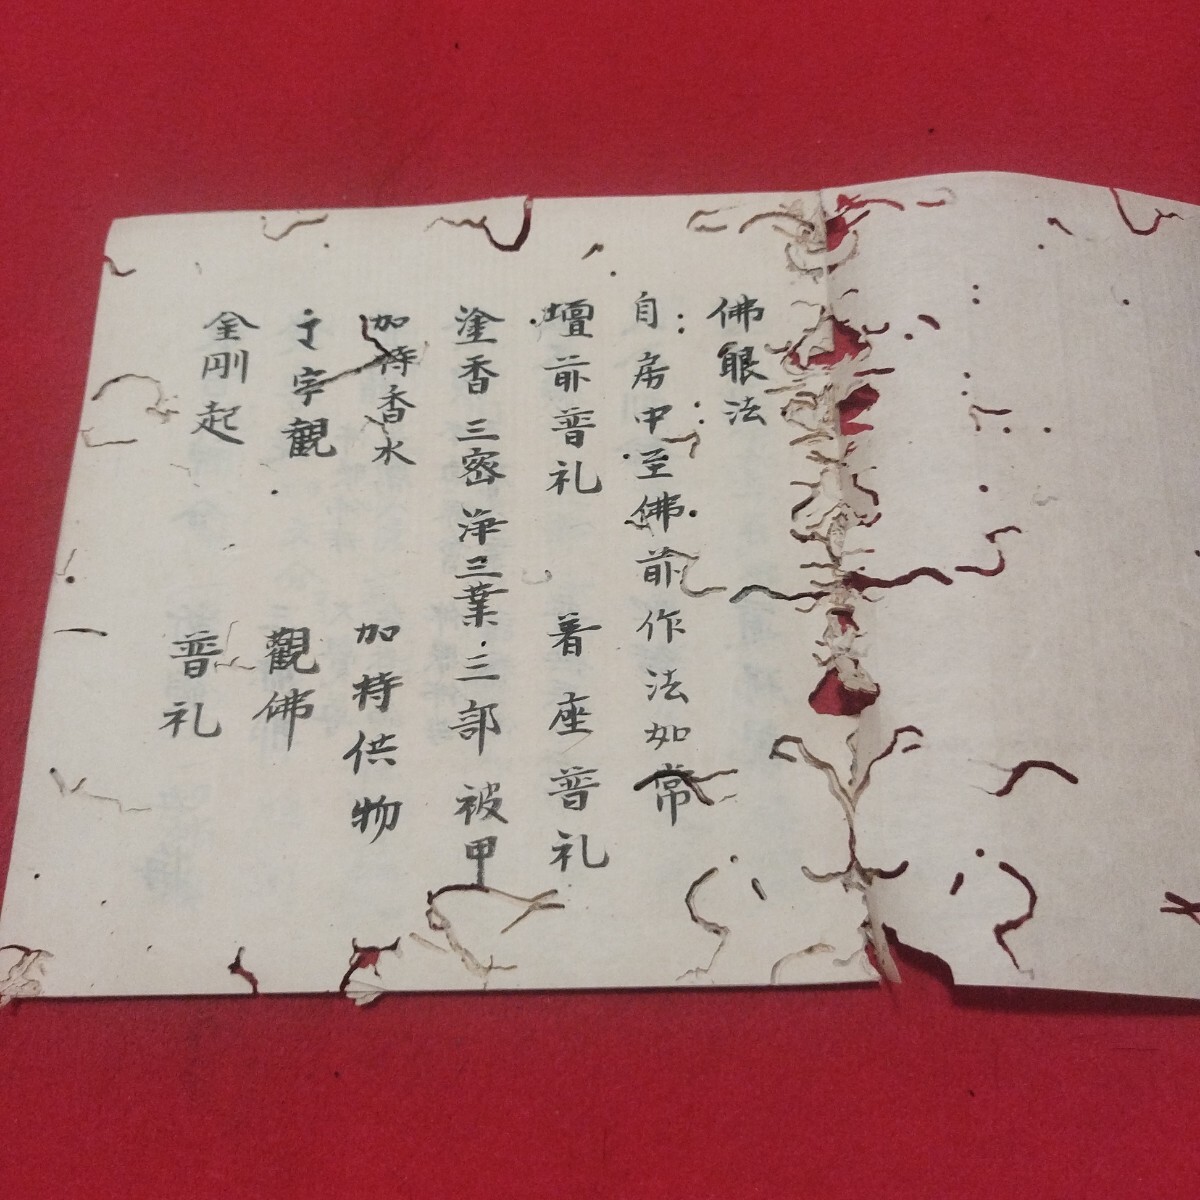 佛眼法
自房中至佛前作法如常
壇前普礼　着座普礼
塗香三密淨三業三部被甲
加持香水　加持供物
字觀　觀佛
金剛起　普礼